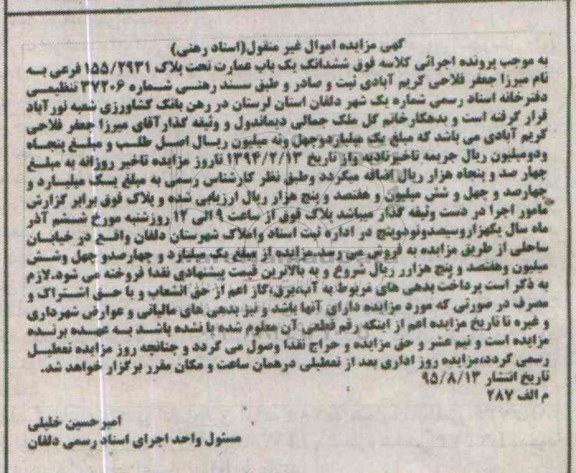 آگهی مزایده اموال غیر منقول(اسناد رهنی)
به موجب پرونده اجرائی کلاسه فوق ششدانگ یک باب عمارت تحت پلاک ۱۵۵/۲۹۳۱ فرعی به
نام میرزا جعفر فلاحی کریم آبادی ثبت و صادر و طبق سند رهنی شماره ۳۷۲۰۶ تنظیمی
دفترخانه اسناد رسمی شماره یک شهر دلفان استان لرستان در رهن بانک کشاورزی شعبه نورآباد
قرار گرفته است و بدهکارخانم گل ملک جمالی دیماندول و وثیقه گذارآقای میرزا جعفر فلاحی
کریم آبادی می باشد که مبلغ یک میلیاردوچهل ونه میلیون ریال اصل طلب و مبلغ پنجاه
ودومیلیون ریال جریمه تاخیرتادیه واز تاریخ ۱۳۹۴/۲/۱۳ تاروز مزایده تاخیر روزانه به مبلغ
چهار صد و پنجاه هزار ریال اضافه میگردد وطبق نظر کارشناس رسمی به مبلغ یک میلیارد و
چهارصد و چهل و شش میلیون و هفتصد و پنج هزار ریال ارزیابی شده و پلاک فوق برابر گزارش
مامور اجرا در دست وثیقه گذار میباشد پلاک فوق از ساعت ۹ الی ۱۲ روزشنبه مورخ ششم آذر
ماه سال یکهزاروسیصدونودوپنج در اداره ثبت اسناد واملاک شهرستان دلفان واقع در خیابان
ساحلی از طریق مزایده به فروش می رسد.مزایده از مبلغ یک میلیارد و چهارصدو چهل وشش
میلیون وهفتصد و پنج هزارر ریال شروع و به بالاترین قیمت پیشنهادی نقدا فروخته می شود.لازم
به ذکر است پرداخت بدهی های مربوط به آب،برق،گاز اعم از حق انشعاب و یا حق اشتراک و
مصرف در صورتی که مورد مزایده دارای آنها باشد و نیز بدهی های مالیاتی و عوارض شهرداری
و غیره تا تاریخ مزایده اعم از اینکه رقم قطعی آن معلوم شده یا نشده باشد به عهده برنده
مزایده است و نیم عشر و حق مزایده و حراج نقدا وصول می گردد و چنانچه روز مزایده تعطیل
رسمی گردد،مزایده روز اداری بعد از تعطیلی درهمان ساعت و مکان مقرر برگزار خواهد شد.
تاریخ انتشار ۹۵/۸/۱۳
م الف ۲۸۷
امیرحسین خلیلی
مسئول واحد اجرای اسناد رسمی دلفان